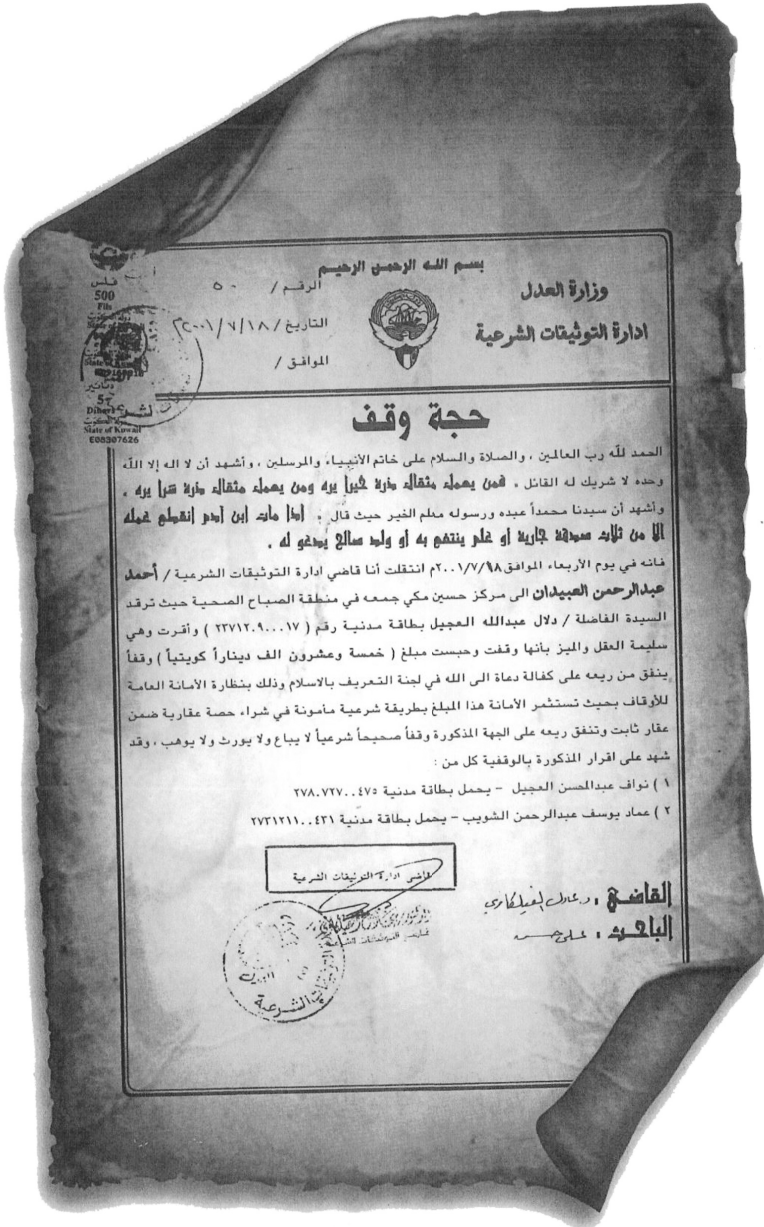 بسم الله الرحمن الرحيم
وزارة العدل
ادارة التوثيقات الشرعية
الرقم / ٥٠
التاريخ / ٢٠٠١/٧/١٨م
الموافق /
فلس
500
Fils
State of Kuwait
دنانير
5
Dinars
State of Kuwait
E08307626
حجة وقف
الحمد لله رب العالمين ، والصلاة والسلام على خاتم الأنبياء والمرسلين ، وأشهد أن لا اله إلا الله
وحده لا شريك له القائل ، فمن يعمل مثقال ذرة خيرا يره ومن يعمل مثقال ذرة شرا يره ،
وأشهد أن سيدنا محمداً عبده ورسوله معلم الخير حيث قال ، اذا مات ابن ادم انقطع عمله
الا من ثلاث صدقة جارية أو علم ينتفع به أو ولد صالح يدعو له ،
فانه في يوم الأربعاء الموافق ٢٠٠١/٧/٩٨م انتقلت أنا قاضي ادارة التوثيقات الشرعية / أحمد
عبدالرحمن العبيدان الى مركز حسين مكي جمعه في منطقة الصباح الصحية حيث ترقد
السيدة الفاضلة / دلال عبدالله العجيل بطاقة مدنية رقم ( ٢٣٧١٢٠٩٠٠٠١٧ ) وأقرت وهي
سليمة العقل والميز بأنها وقفت وحبست مبلغ ( خمسة وعشرون الف ديناراً كويتياً ) وقفاً
ينفق من ريعه على كفالة دعاة الى الله في لجنة التعريف بالاسلام وذلك بنظارة الأمانة العامة
للأوقاف بحيث تستثمر الأمانة هذا المبلغ بطريقة شرعية مأمونة في شراء حصة عقارية ضمن
عقار ثابت وتنفق ريعه على الجهة المذكورة وقفاً صحيحاً شرعياً لا يباع ولا يورث ولا يوهب ، وقد
شهد على اقرار المذكورة بالوقفية كل من :
١ ) نواف عبدالمحسن العجيل – يحمل بطاقة مدنية ٢٧٨٠٧٢٧٠٠٤٧٥
٢ ) عماد يوسف عبدالرحمن الشويب – يحمل بطاقة مدنية ٢٧٣١٢١١٠٠٤٣١
قاضي ادارة التوثيقات الشرعية
القاضي ، د. عادل الفيلكاوي
الباحث ، علي